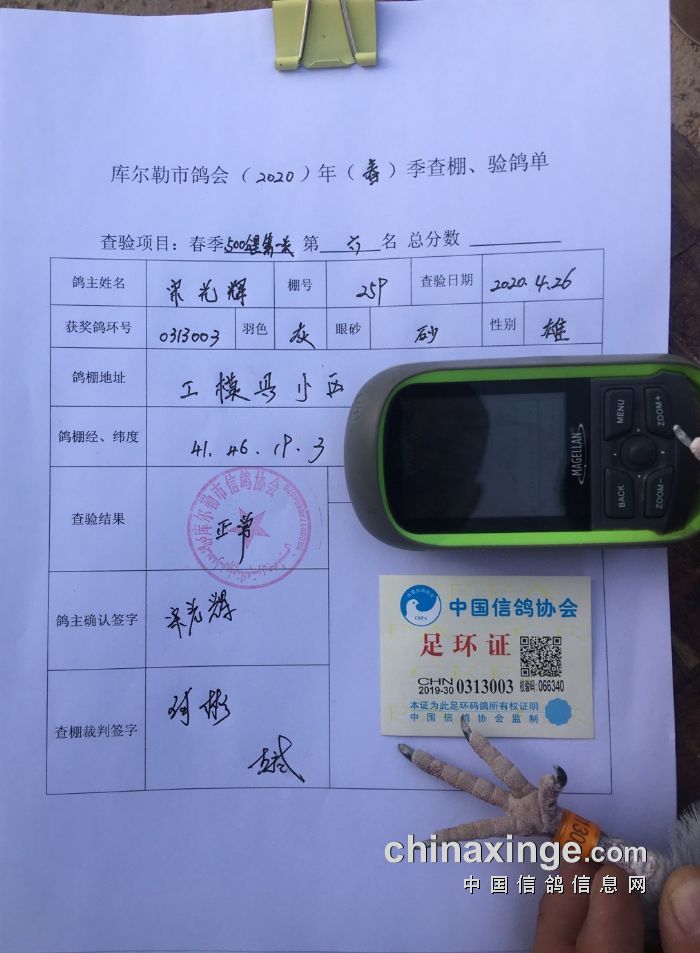 库尔勒市鸽会（2020）年（春）季查棚、验鸽单
查验项目：春季500 第 六 名 总分数
鸽主姓名 宋光辉 棚号 259 查验日期 2020.4.26
获奖鸽环号 0313003 羽色 灰 眼砂 砂 性别 雄
鸽棚地址 工模具小区
鸽棚经、纬度 41.46.19.3
查验结果 正常
库尔勒市信鸽协会
鸽主确认签字 宋光辉
查棚裁判签字
MAGELLAN
MENU
ZOOM+
BACK
ZOOM−
中国信鸽协会
CRPA
足环证
CHN
2019-30 0313003 校验码: 066340
本证为此足环码鸽所有权证明
中国信鸽协会监制
chinaxinge.com
中国信鸽信息网